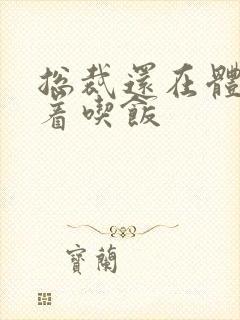 總裁還在體
着喫飯
寶蘭